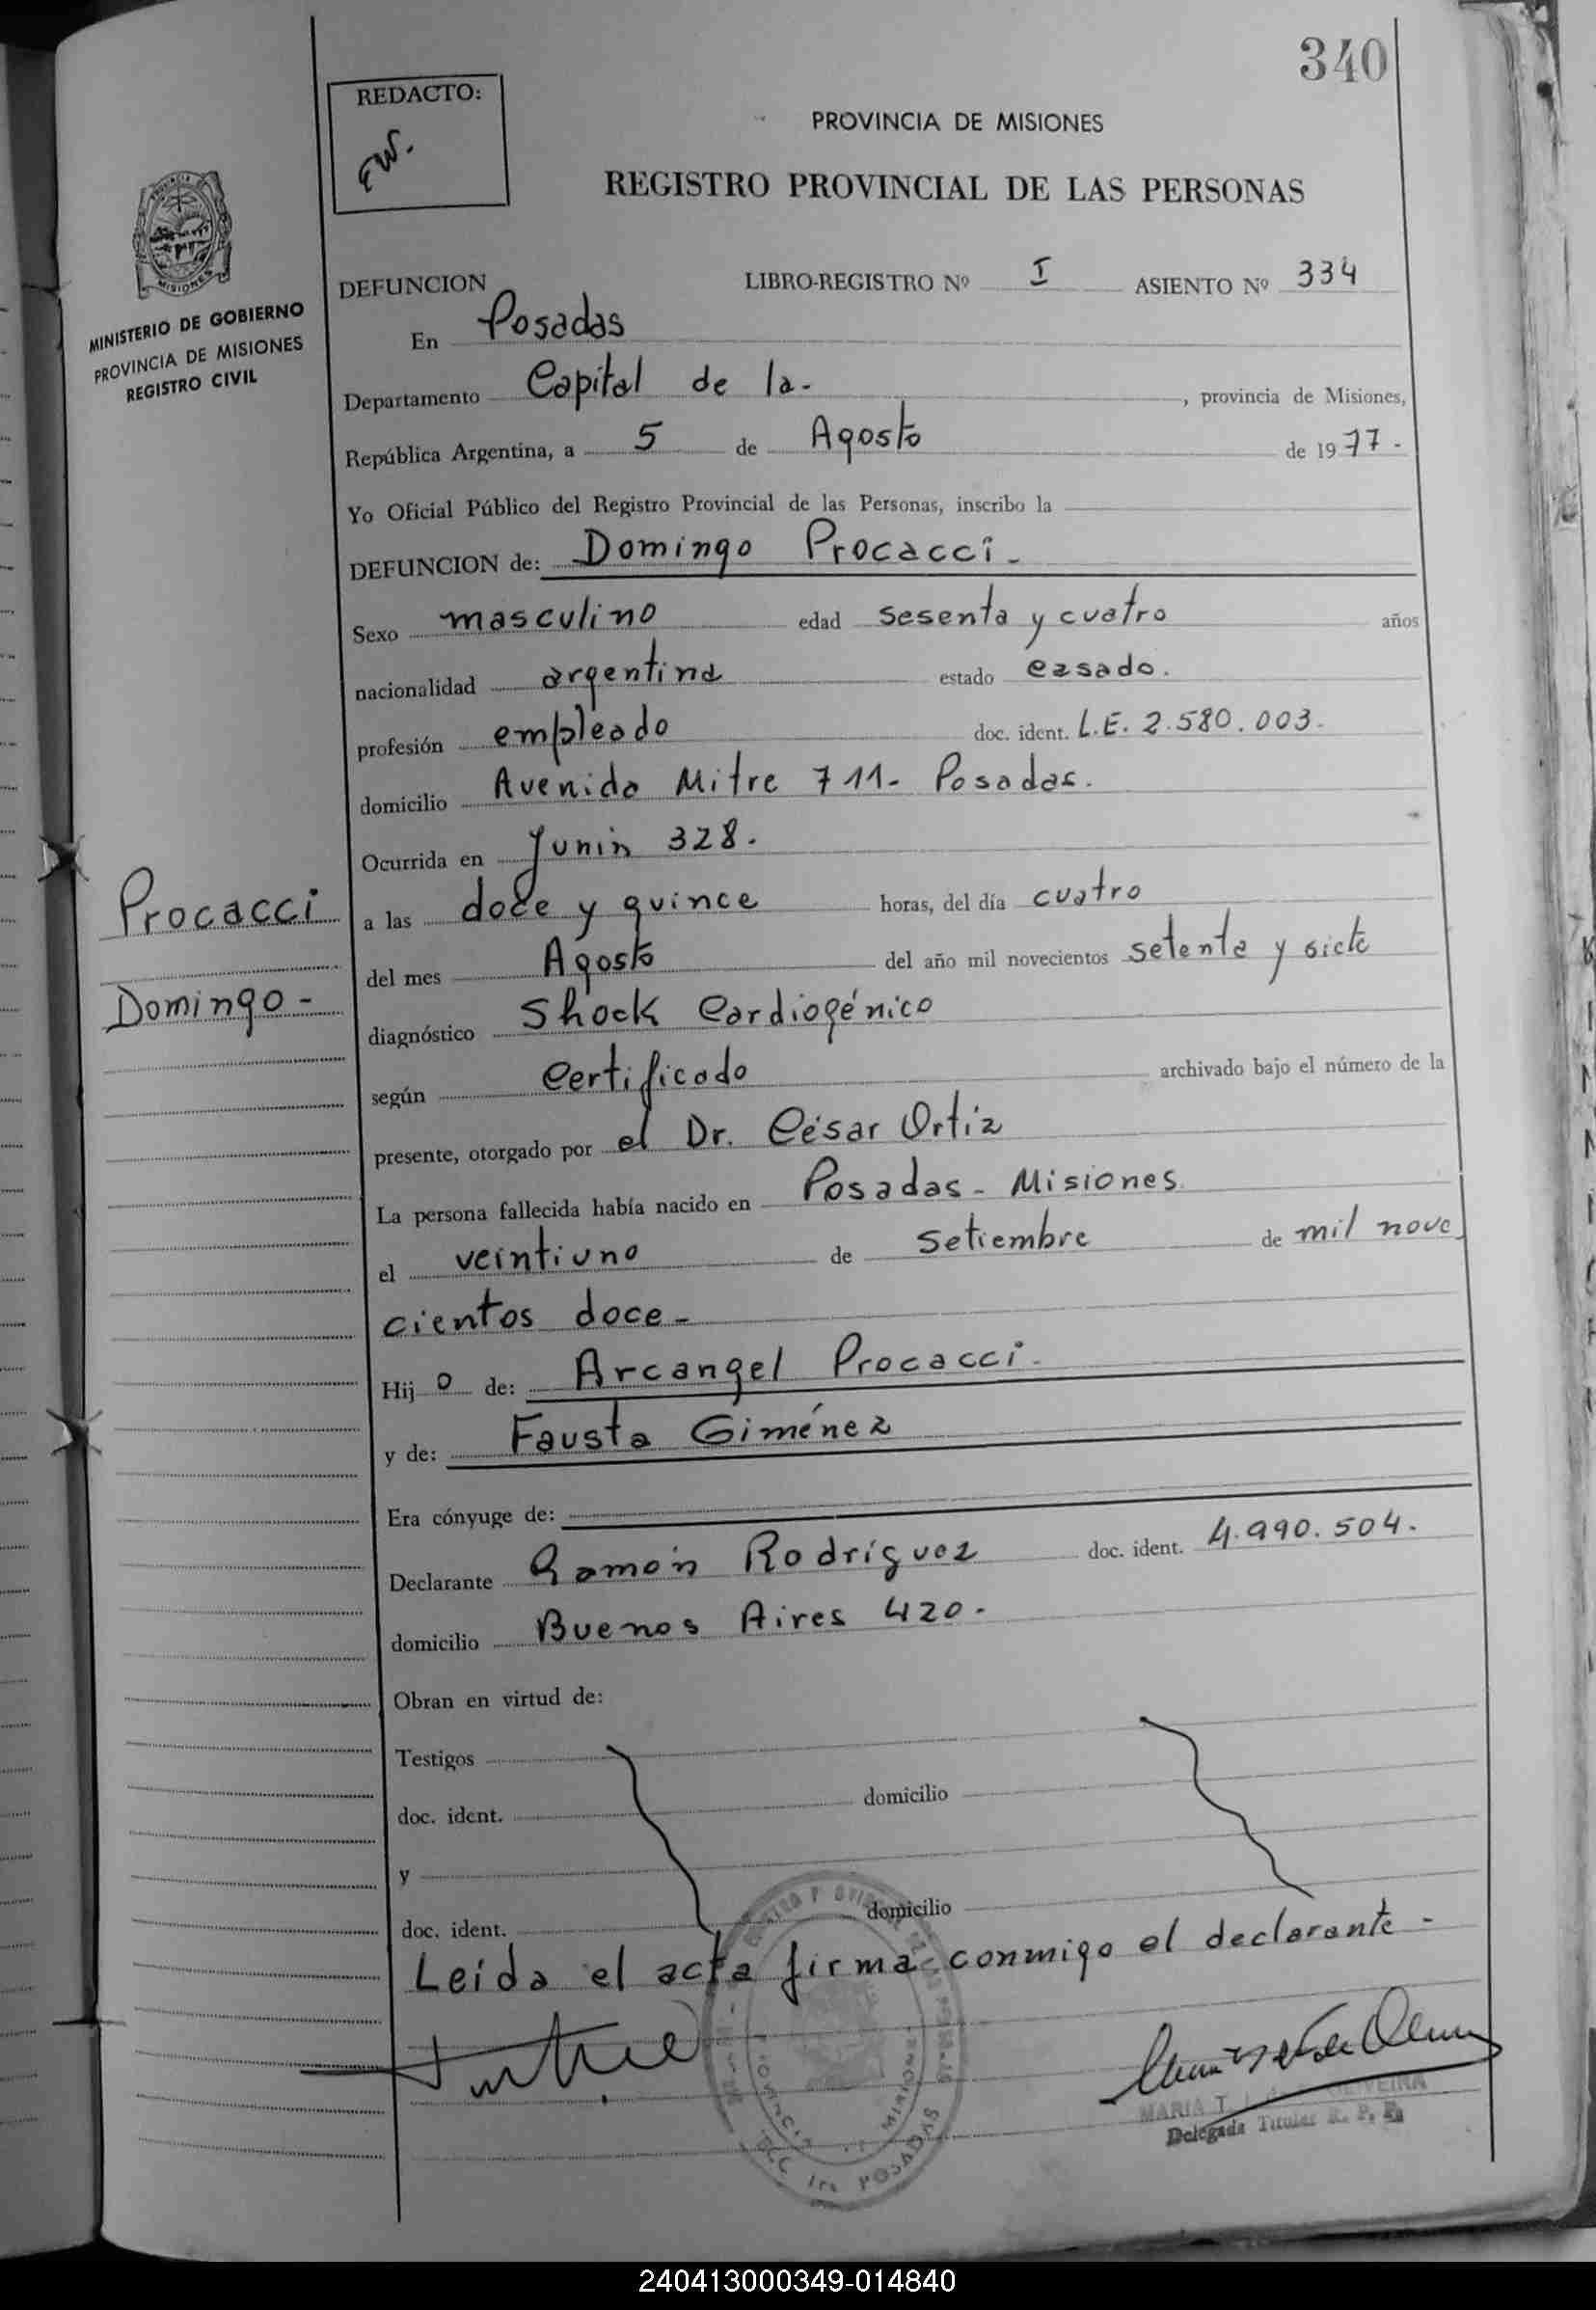 340
REDACTO:
EW.
PROVINCIA DE MISIONES
REGISTRO PROVINCIAL DE LAS PERSONAS
MISIONES
MINISTERIO DE GOBIERNO
PROVINCIA DE MISIONES
REGISTRO CIVIL
DEFUNCION LIBRO-REGISTRO Nº I ASIENTO Nº 334
En Posadas
Departamento Capital de la- , provincia de Misiones,
República Argentina, a 5 de Agosto de 1977-
Yo Oficial Público del Registro Provincial de las Personas, inscribo la
DEFUNCION de: Domingo Procacci-
Sexo masculino edad sesenta y cuatro años
nacionalidad argentina estado casado.
profesión empleado doc. ident. L.E. 2.580.003-
domicilio Avenida Mitre 711- Posadas.
Ocurrida en Junin 328.
Procacci
a las doce y quince horas, del día cuatro
del mes Agosto del año mil novecientos setenta y siete
Domingo-
diagnóstico Shock Cardiogénico
según Certificado archivado bajo el número de la
presente, otorgado por el Dr. César Ortiz
La persona fallecida había nacido en Posadas- Misiones
el veintiuno de Setiembre de mil nove
cientos doce-
Hijo de: Arcangel Procacci-
y de: Fausta Giménez
Era cónyuge de:
Declarante Ramón Rodríguez doc. ident. 4.990.504-
domicilio Buenos Aires 420-
Obran en virtud de:
Testigos
doc. ident. domicilio
y
doc. ident. domicilio
Leída el acta firma conmigo el declarante-
MARIA T. OLIVEIRA
Delegada Titular R. P. P.
POSADAS
240413000349-014840